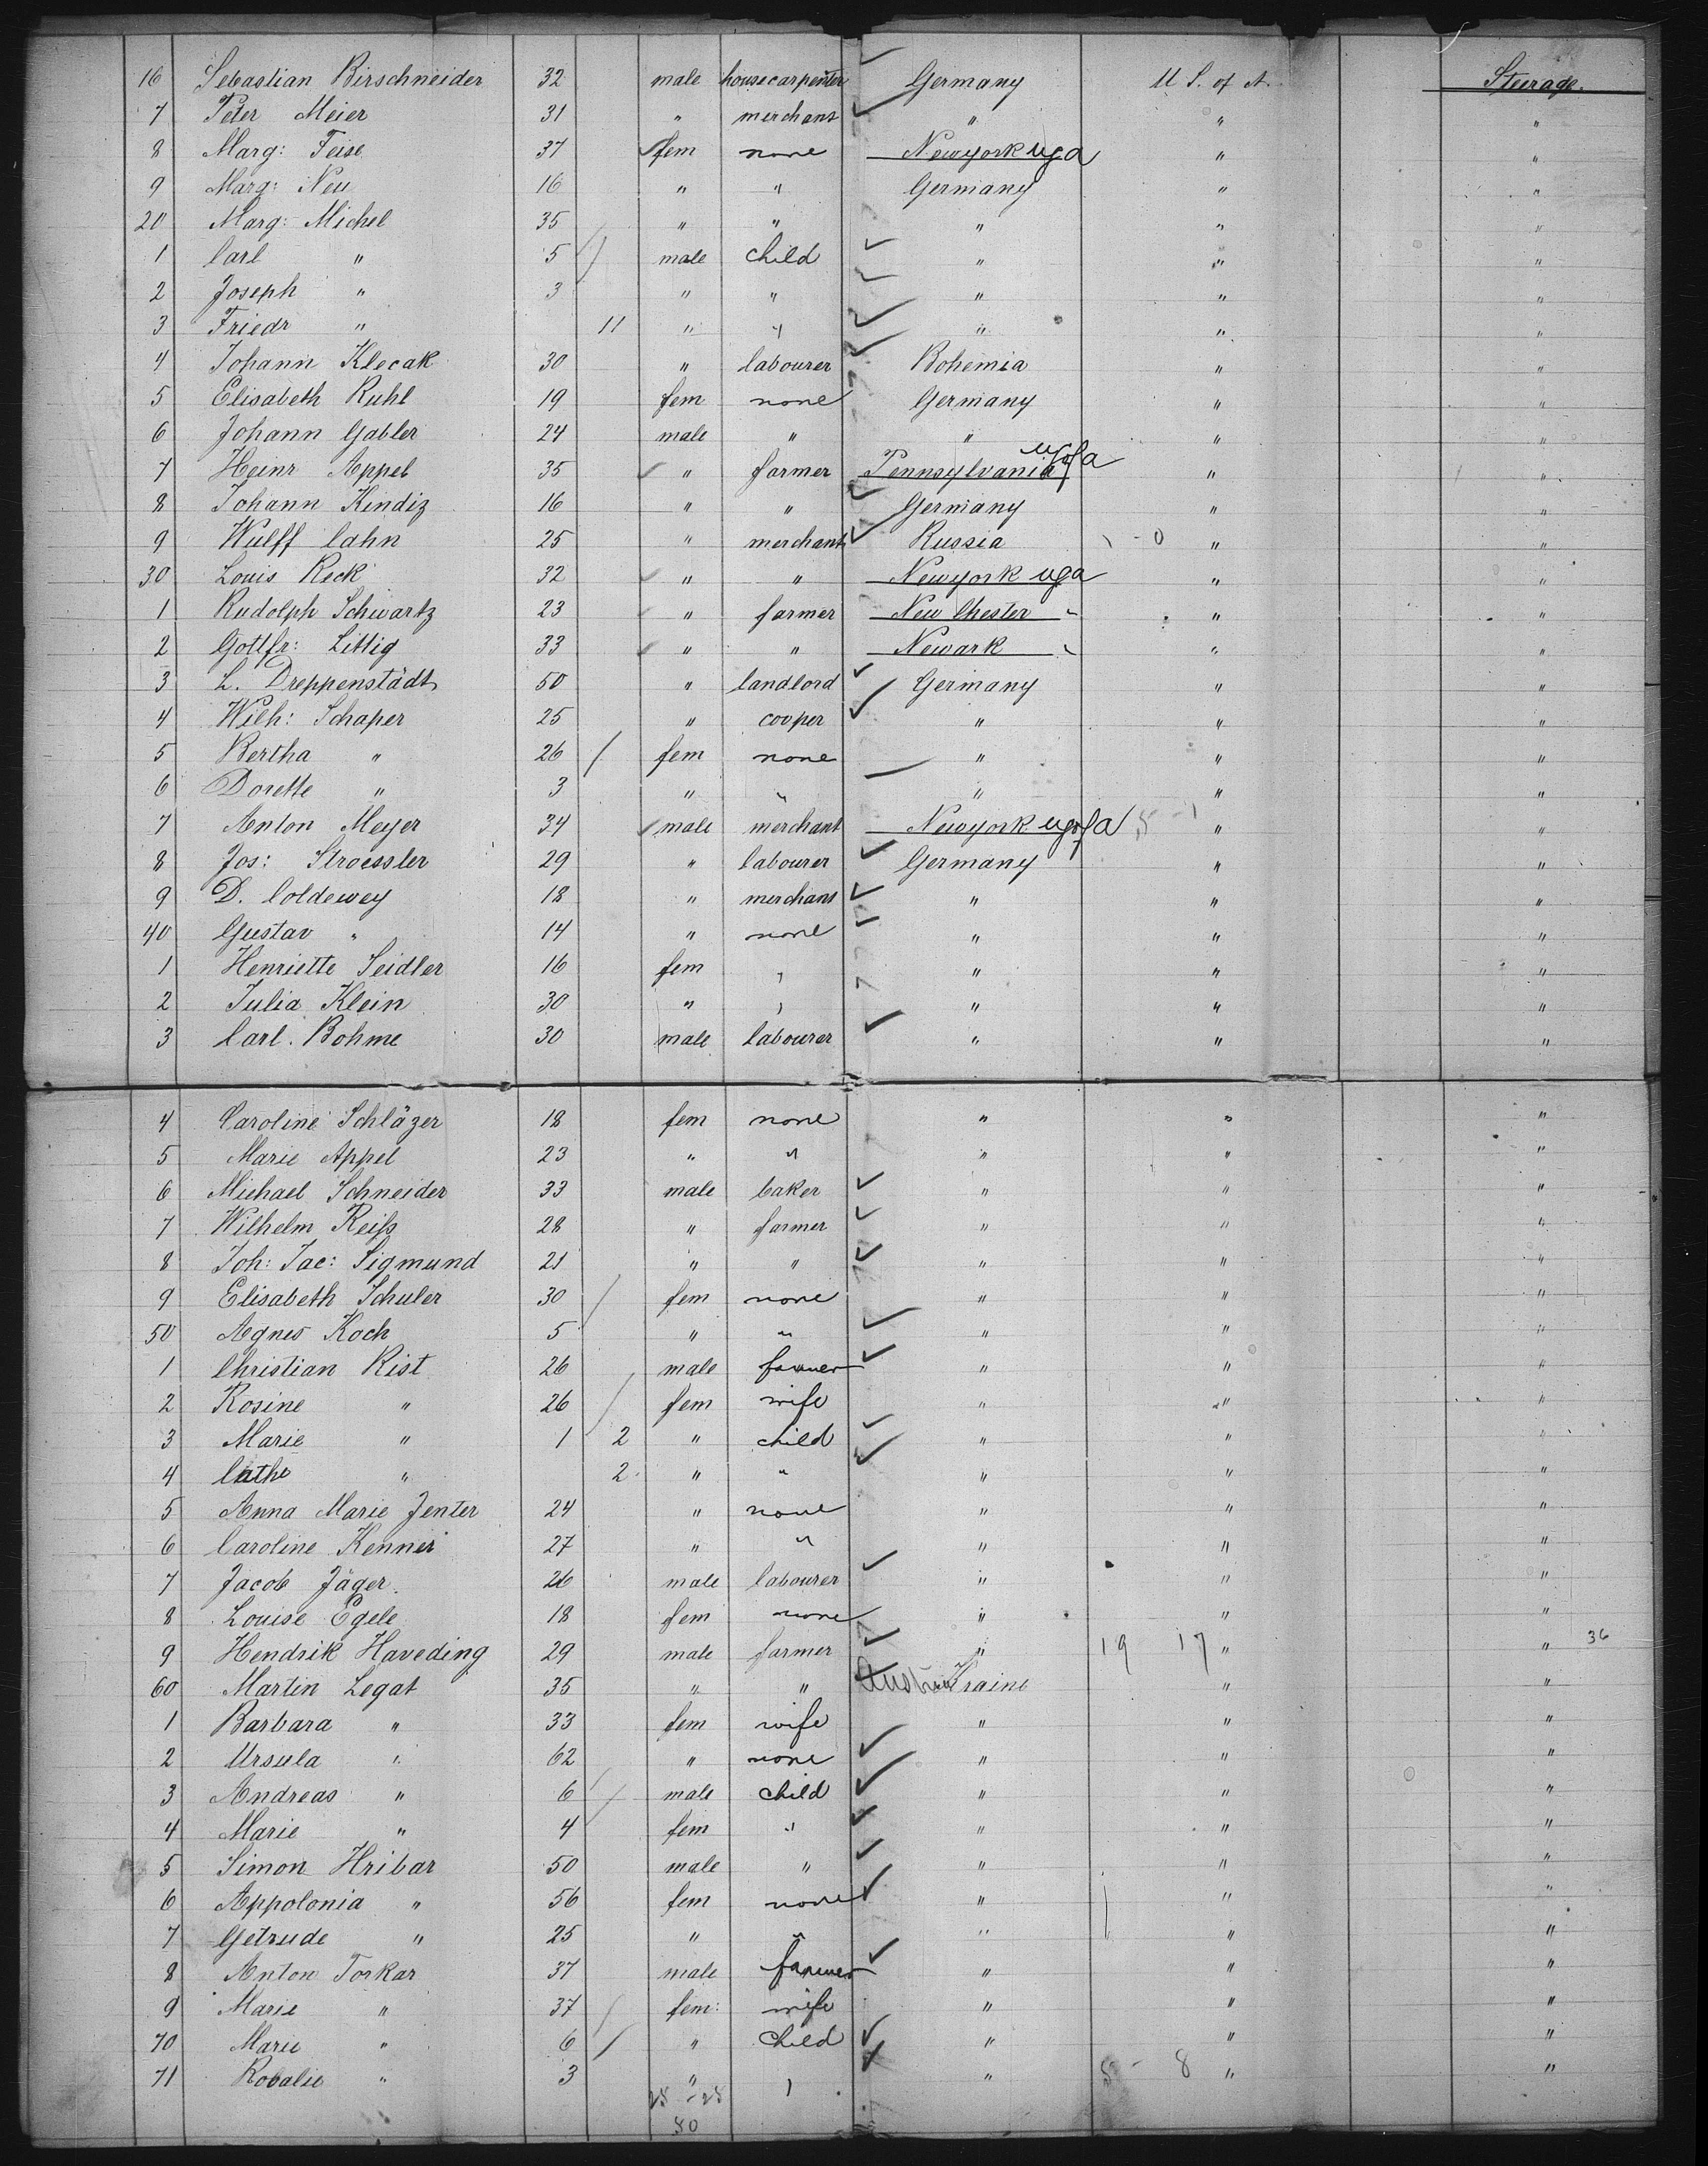 16 Sebastian Birschneider 32 male housecarpenter Germany U S. of A. Steerage.
7 Peter Meier 31 " merchant " " "
8 Marg: Feise 37 fem none Newyork " "
9 Marg: Neu 16 " " Germany " "
20 Marg: Michel 35 " " " " "
1 Carl " 5 male child " " "
2 Joseph " 3 " " " " "
3 Friedr " 11 " " " " "
4 Johann Klecak 30 " labourer Bohemia " "
5 Elisabeth Ruhl 19 fem none Germany " "
6 Johann Gabler 24 male " " " "
7 Heinr Appel 35 " farmer Pennsylvania " "
8 Johann Kindiz 16 " " Germany " "
9 Wulff Cahn 25 " merchant Russia 1 - 0 " "
30 Louis Reck 32 " " Newyork " "
1 Rudolph Schwartz 23 " farmer New Chester " " "
2 Gottfr: Littig 33 " " Newark " " "
3 L. Dreppenstädt 50 " landlord Germany " "
4 Wilh: Schaper 25 " cooper " " "
5 Bertha " 26 fem none " " "
6 Dorette " 3 " " " " "
7 Anton Meyer 34 male merchant Newyork 5 - 1 " "
8 Jos: Stroessler 29 " labourer Germany " "
9 D. Coldewey 18 " merchant " " "
40 Gustav " 14 " none " " "
1 Henriette Seidler 16 fem " " " "
2 Julia Klein 30 " " " " "
3 Carl. Bohme 30 male labourer " " "
4 Caroline Schläger 18 fem none " " "
5 Marie Appel 23 " " " " "
6 Michael Schneider 33 male baker " " "
7 Wilhelm Reiß 28 " farmer " " "
8 Joh: Jac: Sigmund 21 " " " " "
9 Elisabeth Schuler 30 fem none " " "
50 Agnes Koch 5 " " " " "
1 Christian Rist 26 male farmer " " "
2 Rosine " 26 fem wife " " "
3 Marie " 1 2 " child " " "
4 Cath " 2 " " " " "
5 Anna Marie Jenter 24 " none " " "
6 Caroline Kenner 27 " " " " "
7 Jacob Jäger. 26 male labourer " " "
8 Louise Egele 18 fem none " " "
9 Hendrik Haveding 29 male farmer " 19 17 " " 36
60 Martin Legat 35 " " Austria Kraine " "
1 Barbara " 33 fem wife " " "
2 Ursula " 62 " none " " "
3 Andreas " 6 male child " " "
4 Marie " 4 fem " " " "
5 Simon Hribar 50 male " " " "
6 Appolonia " 56 fem none " " "
7 Getrude " 25 " " " " "
8 Anton Torkar 37 male farmer " " "
9 Marie " 37 fem: wife " " "
70 Marie " 6 " child " " "
71 Rosalie " 3 " " " 5 - 8 " "
28 - 28